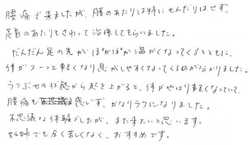 腰痛で来ましたが、腰のあたりは特にせんたりはせず、
足首のあたりをさわって治療してもらいました。
だんだん足の先がぽかぽかと温かくなってくるとともに、
体がスーっと軽くなり息がしやすくなってくるのが分かりました。
うつぶせの状態から起き上がると、体がやはり軽くなっていて、
腰痛も感じず、かなりラクになりました。
不思議な体験でしたが、また来たいと思います。
妊婦でも全く苦しくなく、おすすめです。